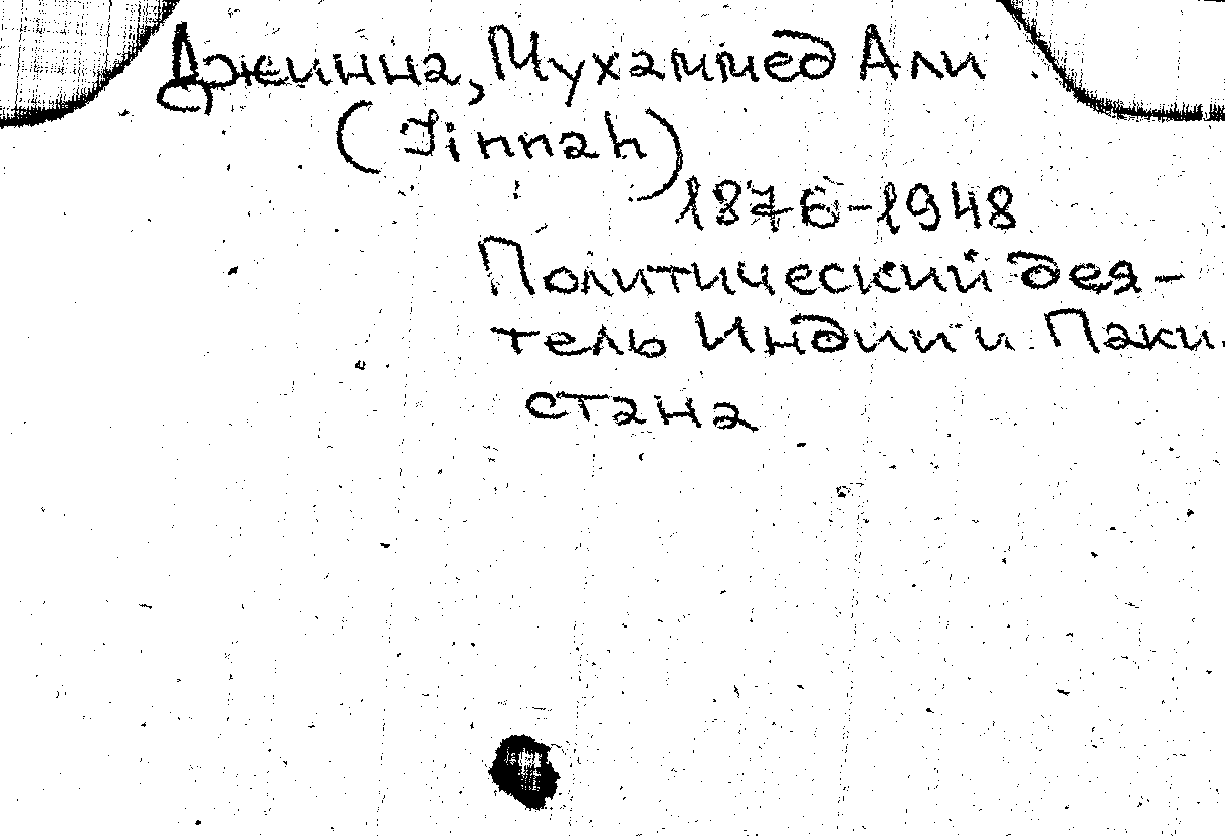 Джинна, Мухаммед Али
(Jinnah)
1876-1948
Политический дея-
тель Индии и Паки-
стана